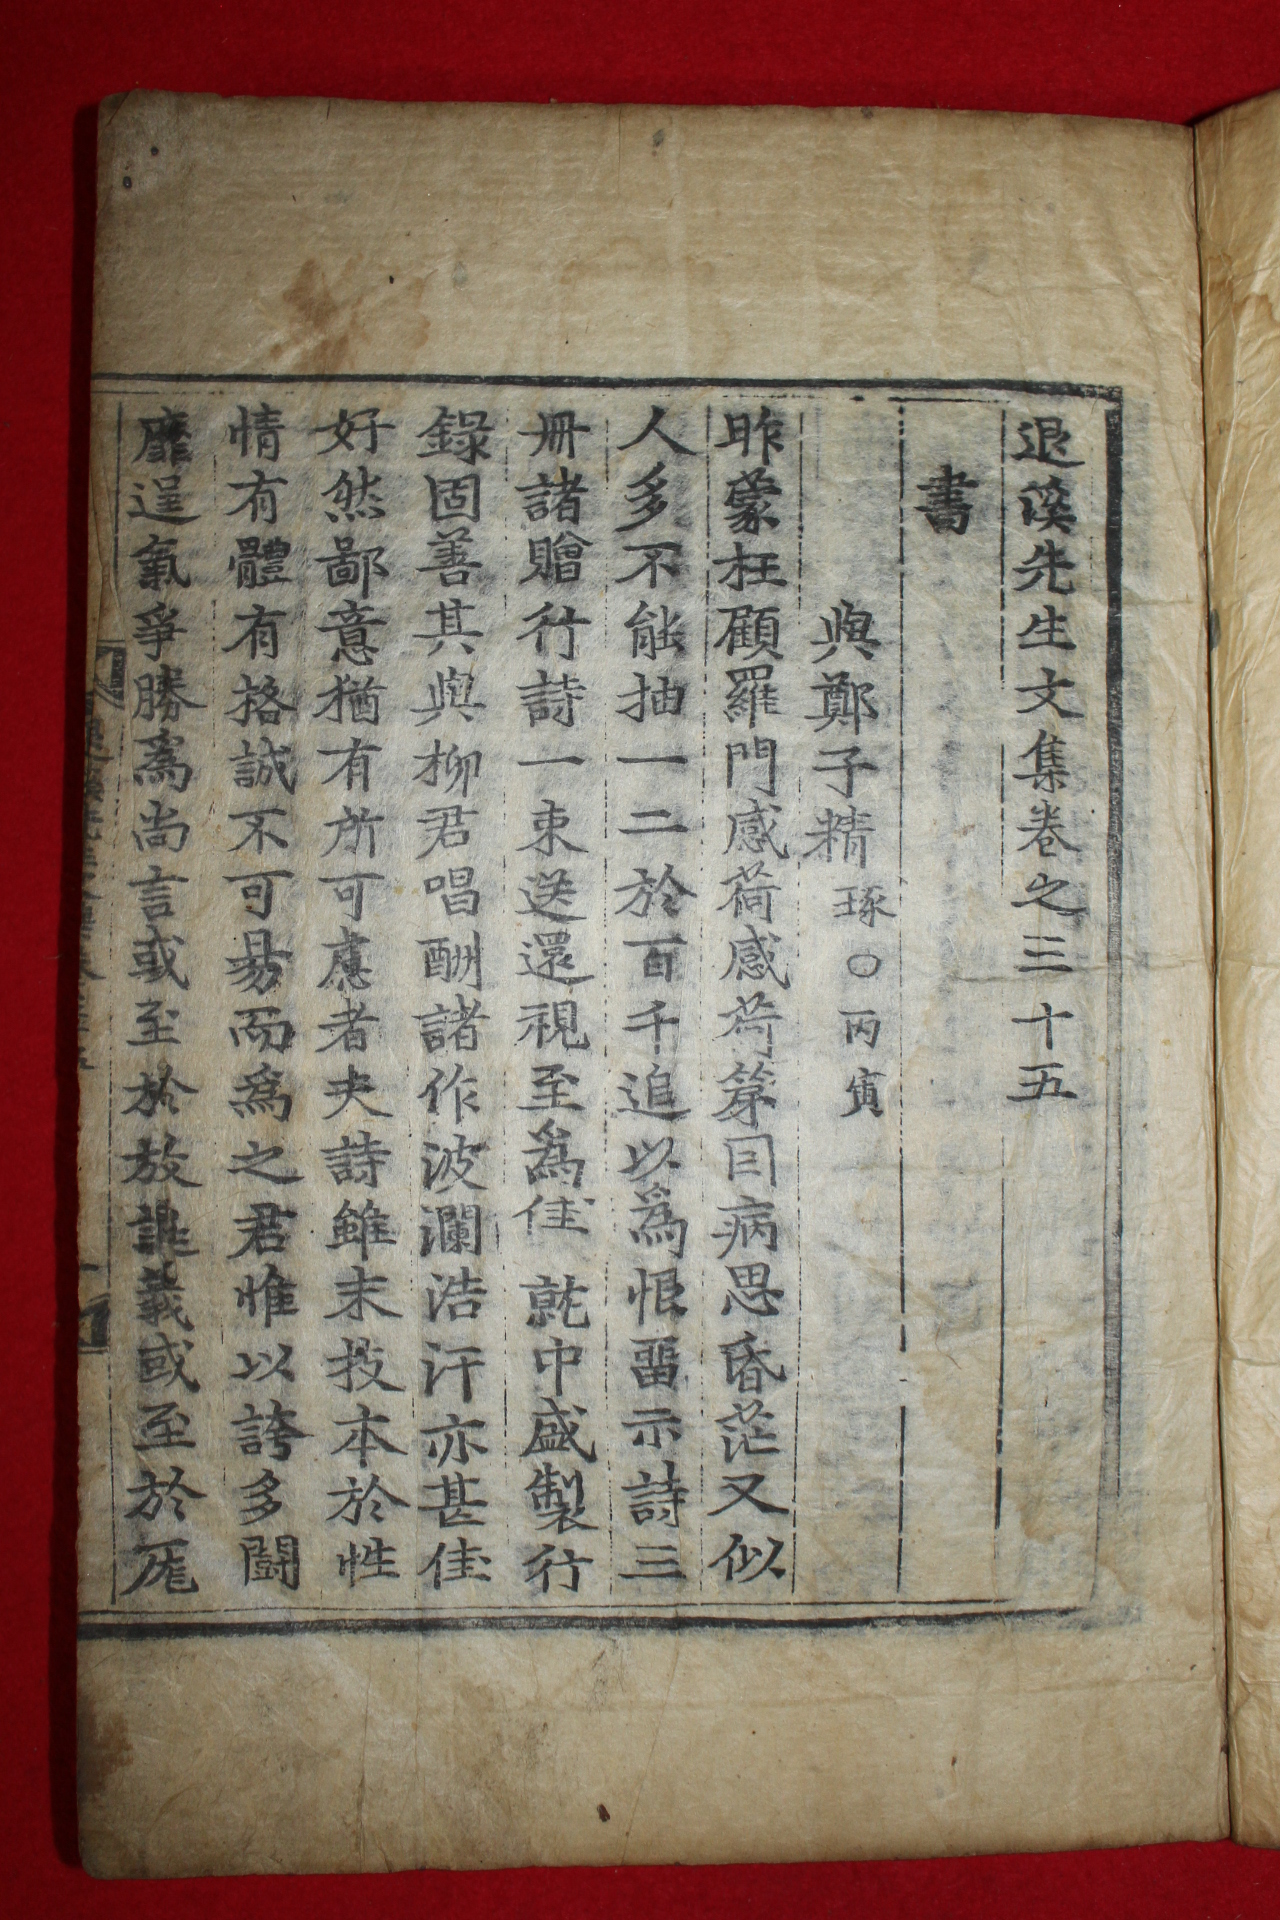 退溪先生文集卷之三十五
書
與鄭子精 琢○丙寅
昨蒙枉顧羅門感荷感荷第因病思昏茫又似
人多不能抽一二於百千追以為恨留示詩三
冊諸贈行詩一束送還視至為佳 就中盛製行
錄固善其與柳君唱酬諸作波瀾浩汗亦甚佳
好然鄙意猶有所可慮者夫詩雖末技本於性
情有體有格誠不可易而爲之君惟以誇多鬪
靡逞氣爭勝爲尚言或至於放誕義或至於厖